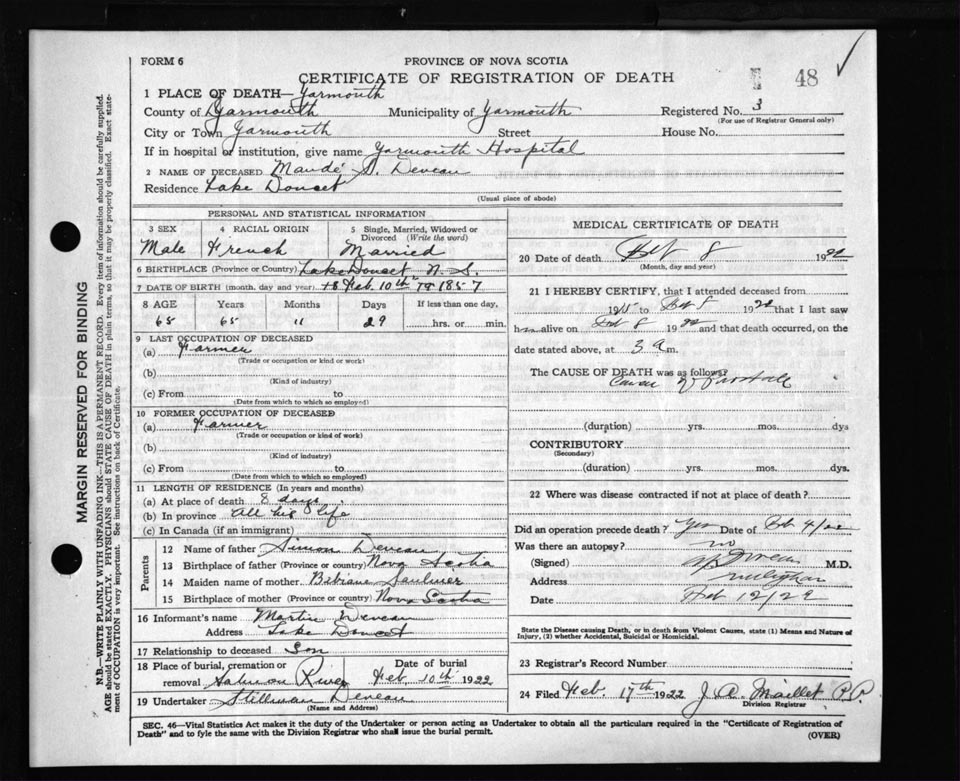 FORM 6
PROVINCE OF NOVA SCOTIA
CERTIFICATE OF REGISTRATION OF DEATH
48
1 PLACE OF DEATH— Yarmouth
County of Yarmouth Municipality of Yarmouth Registered No. 3
(For use of Registrar General only)
City or Town Yarmouth Street House No.
If in hospital or institution, give name Yarmouth Hospital
2 NAME OF DECEASED Mandé S. Deveau
Residence Lake Doucet
(Usual place of abode)
PERSONAL AND STATISTICAL INFORMATION
3 SEX 4 RACIAL ORIGIN 5 Single, Married, Widowed or Divorced (Write the word)
Male French Married
6 BIRTHPLACE (Province or Country) Lake Doucet N. S.
7 DATE OF BIRTH (month, day and year) Feb. 10th 1857
8 AGE Years Months Days If less than one day,
65 65 11 29 hrs. or min.
9 LAST OCCUPATION OF DECEASED
(a) Farmer
(Trade or occupation or kind of work)
(b)
(Kind of industry)
(c) From to
(Date from which to which so employed)
10 FORMER OCCUPATION OF DECEASED
(a) Farmer
(Trade or occupation or kind of work)
(b)
(Kind of industry)
(c) From to
(Date from which to which so employed)
11 LENGTH OF RESIDENCE (In years and months)
(a) At place of death 8 days
(b) In province all his life
(c) In Canada (if an immigrant)
Parents
12 Name of father Simon Deveau
13 Birthplace of father (Province or country) Nova Scotia
14 Maiden name of mother Bibiane Saulnier
15 Birthplace of mother (Province or country) Nova Scotia
16 Informant's name Martin Deveau
Address Lake Doucet
17 Relationship to deceased Son
18 Place of burial, cremation or removal Salmon River Date of burial Feb. 10th 1922
19 Undertaker Stillman Deveau
(Name and Address)
MEDICAL CERTIFICATE OF DEATH
20 Date of death Feb 8 1922
(Month, day and year)
21 I HEREBY CERTIFY, that I attended deceased from
19 to Feb 8 1922 that I last saw
h alive on Feb 8 1922 and that death occurred, on the
date stated above, at 3 a m.
The CAUSE OF DEATH was as follows:
Cancer
(duration) yrs. mos. dys
CONTRIBUTORY
(Secondary)
(duration) yrs. mos. dys.
22 Where was disease contracted if not at place of death?
Did an operation precede death? Yes Date of Feb 4/22
Was there an autopsy? no
(Signed) M.D.
Address
Date Feb 12/22
State the Disease causing Death, or in death from Violent Causes, state (1) Means and Nature of Injury, (2) whether Accidental, Suicidal or Homicidal.
23 Registrar's Record Number
24 Filed Feb. 17th 1922 J. A. Maillet
Division Registrar
SEC. 46—Vital Statistics Act makes it the duty of the Undertaker or person acting as Undertaker to obtain all the particulars required in the "Certificate of Registration of
Death" and to fyle the same with the Division Registrar who shall issue the burial permit.
(OVER)
MARGIN RESERVED FOR BINDING
N.B.—WRITE PLAINLY WITH UNFADING INK—THIS IS A PERMANENT RECORD. Every item of information should be carefully supplied.
AGE should be stated EXACTLY. PHYSICIANS should STATE CAUSE OF DEATH in plain terms, so that it may be properly classified. Exact statement
of OCCUPATION is very important. See instructions on back of Certificate.